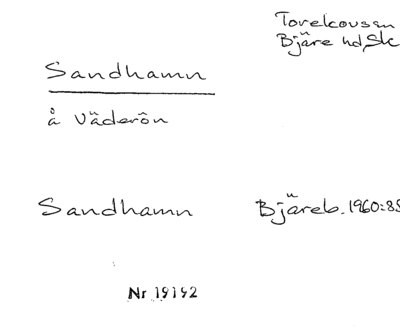 Torekovs sn
Bjäre hd, Sk
Sandhamn
å Väderön
Sandhamn Bjäreb. 1960:88
Nr 19192